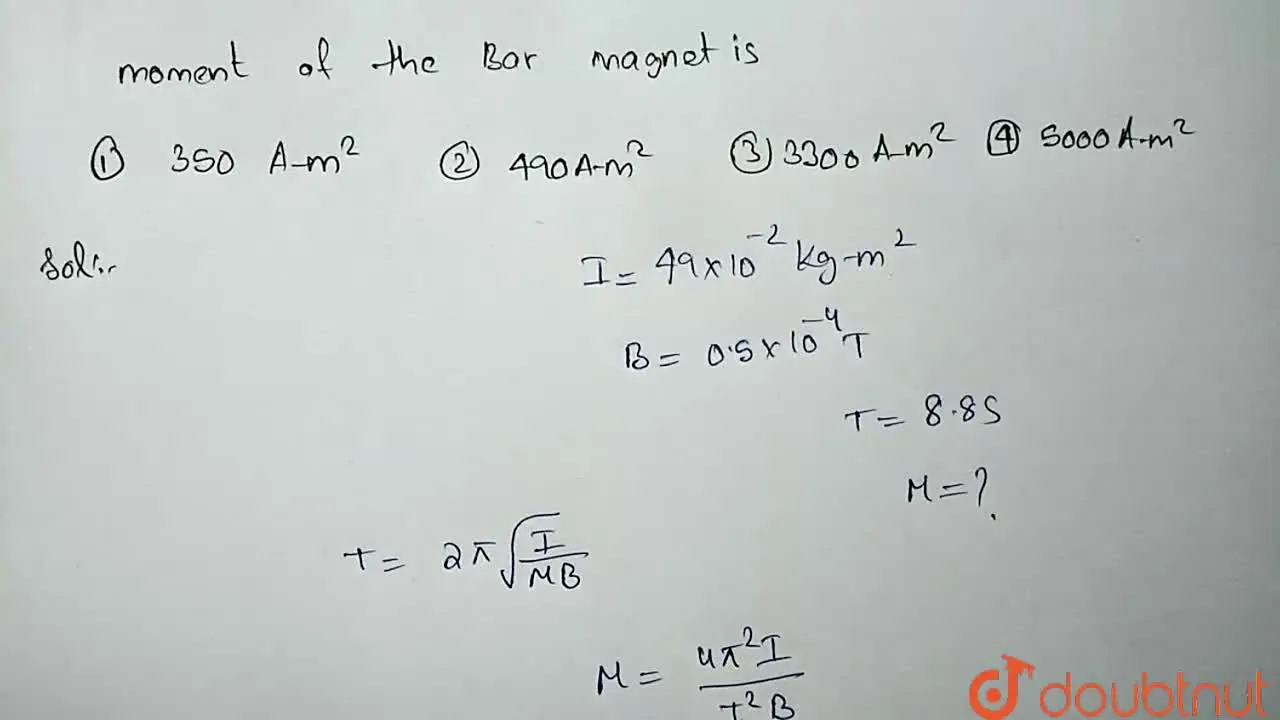 moment of the Bar magnet is
① 350 A-m² ② 490 A-m² ③ 3300 A-m² ④ 5000 A-m²
Sol:-
I = 49×10⁻² kg-m²
B = 0.5×10⁻⁴ T
T = 8.8S
M = ?
T = 2π√(I/MB)
M = 4π²I/T²B
doubtnut